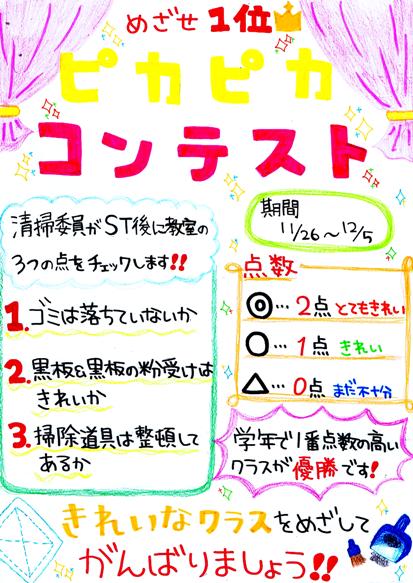 めざせ1位
ピカピカ
コンテスト
清掃委員がST後に教室の
3つの点をチェックします!!
1.ゴミは落ちていないか
2.黒板&黒板の粉受けは
きれいか
3.掃除道具は整頓して
あるか
期間
11/26〜12/5
点数
◎…2点 とてもきれい
○…1点 きれい
△…0点 まだ不十分
学年で1番点数の高い
クラスが優勝です!
きれいなクラスをめざして
がんばりましょう!!